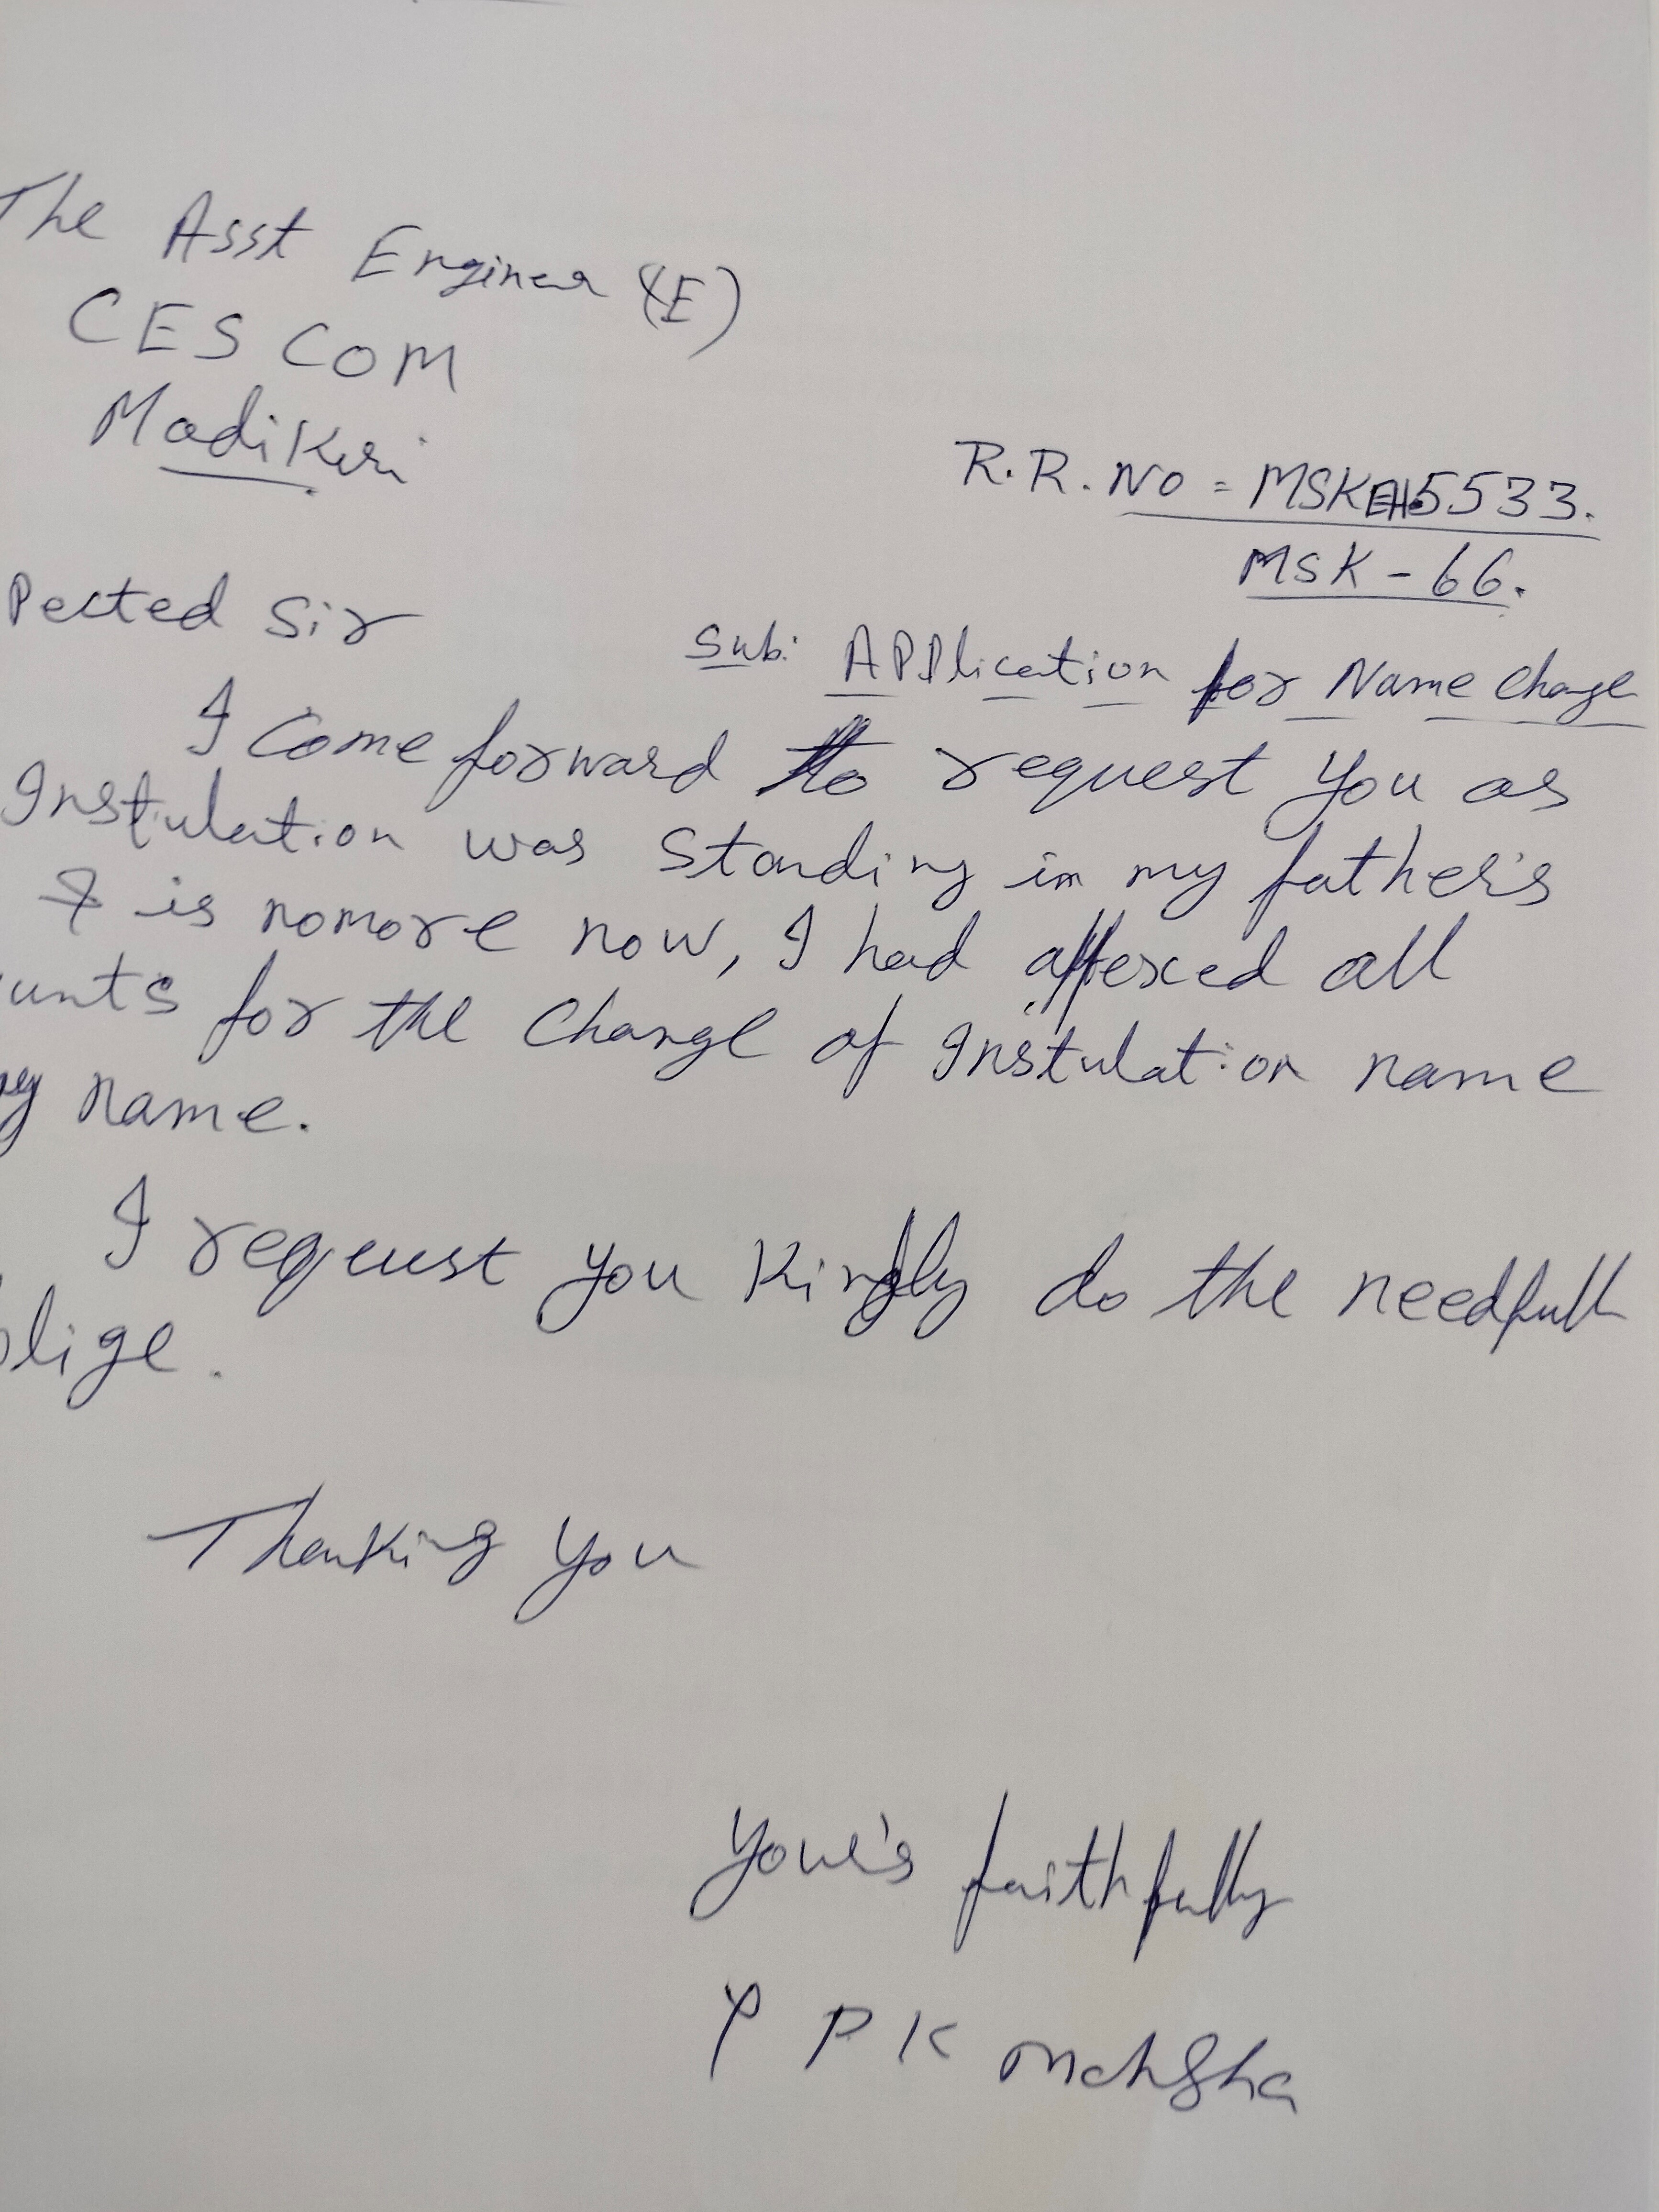 The Asst Engineer (E)
CESCOM
Madikeri
R.R.No = MSKEH5533.
MSK - 66.
Pected Sir
Sub: Application for Name Change
I Come forward to request you as
Instulation was Standing in my father's
is nomore now, I had affexed all
unts for the Change of Instulation name
my name.
I request you Kindly do the needfull
lige.
Thanking you
Your's faithfully
P P K